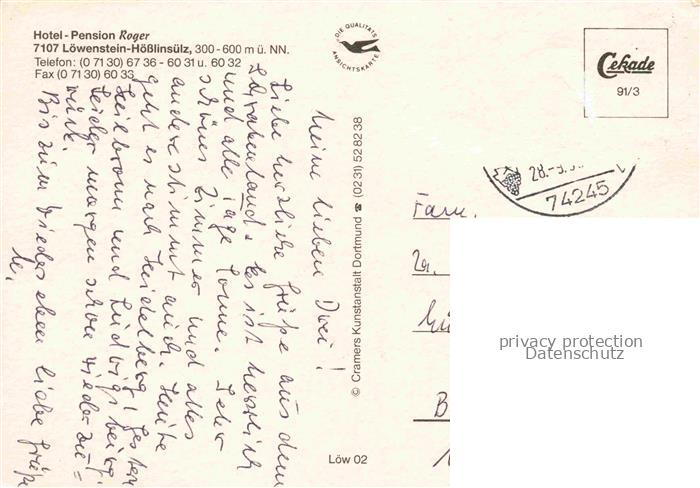 Hotel - Pension Roger
7107 Löwenstein-Hößlinsülz, 300-600 m ü. NN.
Telefon: (0 71 30) 67 36 - 60 31 u. 60 32
Fax (0 71 30) 60 33
DIE QUALITÄTS
ANSICHTSKARTE
Cekade
91/3
28.-9.
74245
Meine lieben Drei!
Liebe herzliche Grüße aus dem
Schwabenland. Es ist herrlich
und alle Tage Sonne. Sehr
schönes Zimmer und alles
andere stimmt auch. Heute
geht es nach Heidelberg, gestern
Heilbronn und Ludwigsburg.
Leider morgen schon wieder zu=
rück.
Bis zum Wiedersehen liebe Grüße
© Cramers Kunstanstalt Dortmund ☎ (0231) 52 82 38
Fam.
B
Löw 02
privacy protection
Datenschutz